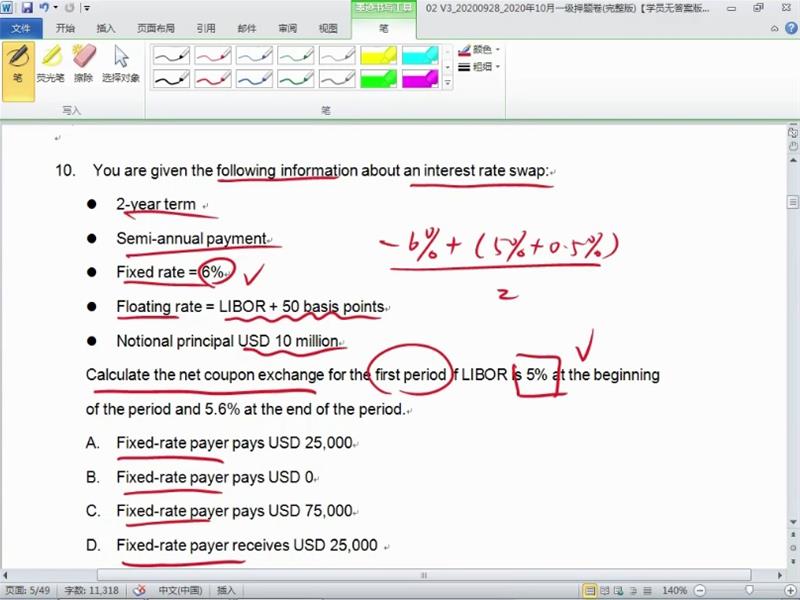 墨迹书写工具
02 V3_20200928_2020年10月一级押题卷(完整版)【学员无答案版...
文件 开始 插入 页面布局 引用 邮件 审阅 视图 笔
笔 荧光笔 擦除 选择对象 颜色 粗细
写入 笔
10. You are given the following information about an interest rate swap:
● 2-year term
● Semi-annual payment
● Fixed rate = 6%
● Floating rate = LIBOR + 50 basis points
● Notional principal USD 10 million
-6% + (5%+0.5%)
2
Calculate the net coupon exchange for the first period if LIBOR is 5% at the beginning
of the period and 5.6% at the end of the period.
A. Fixed-rate payer pays USD 25,000
B. Fixed-rate payer pays USD 0
C. Fixed-rate payer pays USD 75,000
D. Fixed-rate payer receives USD 25,000
页面: 5/49 字数: 11,318 中文(中国) 插入 140%